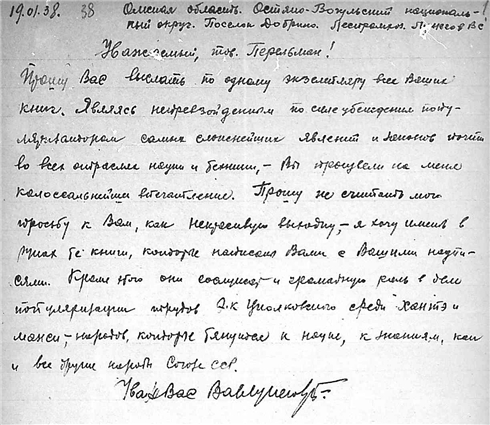 19.01.38. 38 Омская область. Остяко-Вогульский националь-
ный округ. Поселок Добрино.
Уважаемый, тов. Перельман!
Прошу Вас выслать по одному экземпляру все Ваши
книг. Являясь непревзойденным по силе убеждения попу-
ляризатором самых сложнейших явлений и законов почти
во всех отраслях науки и техники, – Вы произвели на меня
колоссальнейшее впечатление. Прошу не считать мою
просьбу к Вам, как некрасивую выходку, – я хочу иметь в
руках те книги, которые написаны Вами с Вашими надпи-
сями. Кроме того они сослужат и громадную роль в деле
популяризации трудов Э.К Циолковского среди хантэ и
манси, – народов, которые тянутся к науке, к знаниям, как
и все другие народы Союза ССР.
Уваж Вас